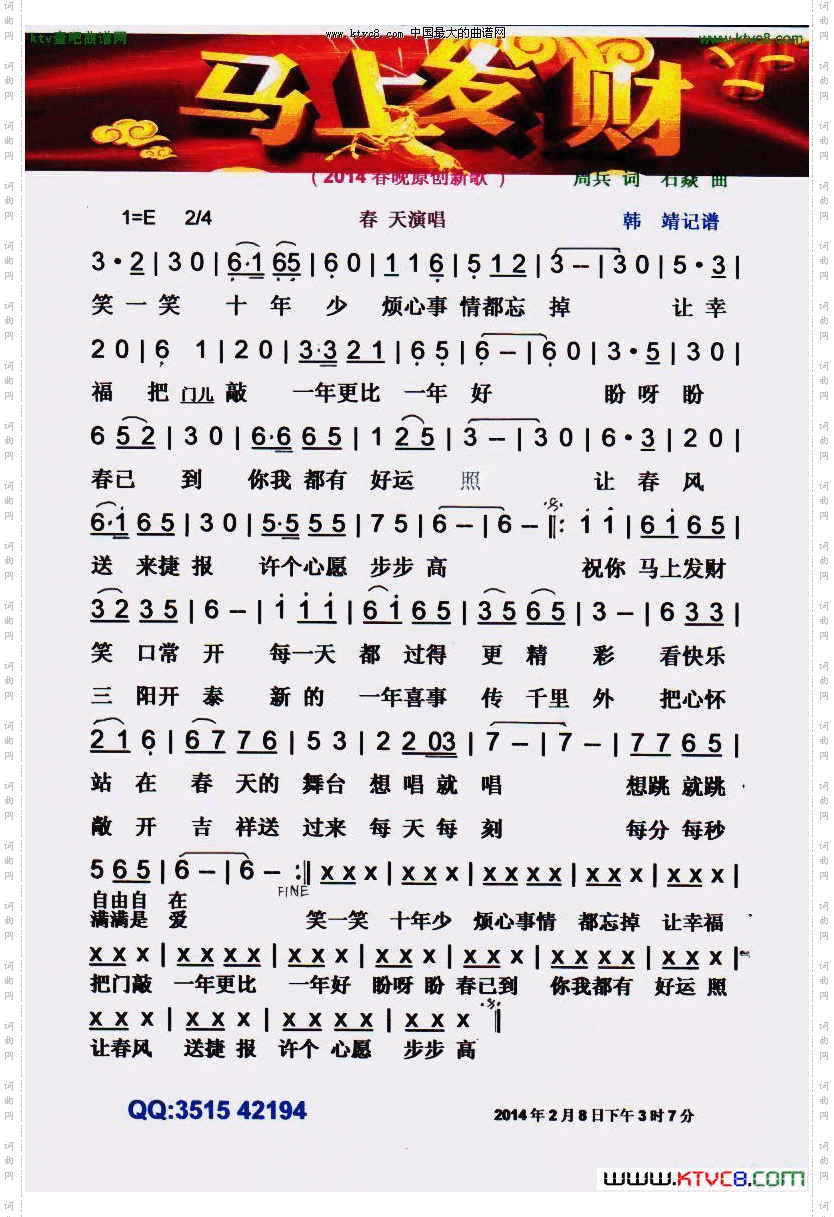 www.ktvc8.com 中国最大的曲谱网
ktv查吧曲谱网
www.ktvc8.com
马上发财
（2014春晚原创新歌） 周兵 词 石焱 曲
1=E 2/4 春 天演唱 韩 靖记谱
3·2|30|6·1 65|60|116|512|3–|30|5·3|
笑一笑 十年少 烦心事 情都忘 掉 让幸
20|6 1|20|3·3 21|65|6–|60|3·5|30|
福 把 门儿 敲 一年更比 一年 好 盼呀 盼
6 52|30|6·6 65|1 25|3–|30|6·3|20|
春已 到 你我 都有 好运 照 让 春 风
6·1 65|30|5·5 55|75|6–|6–‖: 1 1|61 65|
送 来捷 报 许个心愿 步步 高 祝你 马上发财
32 35|6–|1 11|61 65|35 65|3–|6 33|
笑 口常 开 每一天 都 过得 更 精 彩 看快乐
三 阳开 泰 新的 一年喜事 传 千里 外 把心怀
21 6|67 76|53|2 203|7–|7–|77 65|
站在 春 天的 舞台 想 唱就 唱 想跳 就跳
敞开 吉 祥送 过来 每 天每 刻 每分 每秒
5 65|6–|6– :‖x x x|x x x|x x x x|x x x|x x x|
FINE
自由自 在
满满是 爱 笑一笑 十年少 烦心事情 都忘掉 让幸福
x x x|x x x x|x x x|x x x|x x x|x x x x|x x x|
把门敲 一年更比 一年好 盼呀 盼 春已到 你我都有 好运 照
x x x|x x x|x x x x|x x x‖
让春风 送捷 报 许个 心愿 步步 高
QQ:3515 42194
2014年2月8日下午3时7分
www.KTVC8.com